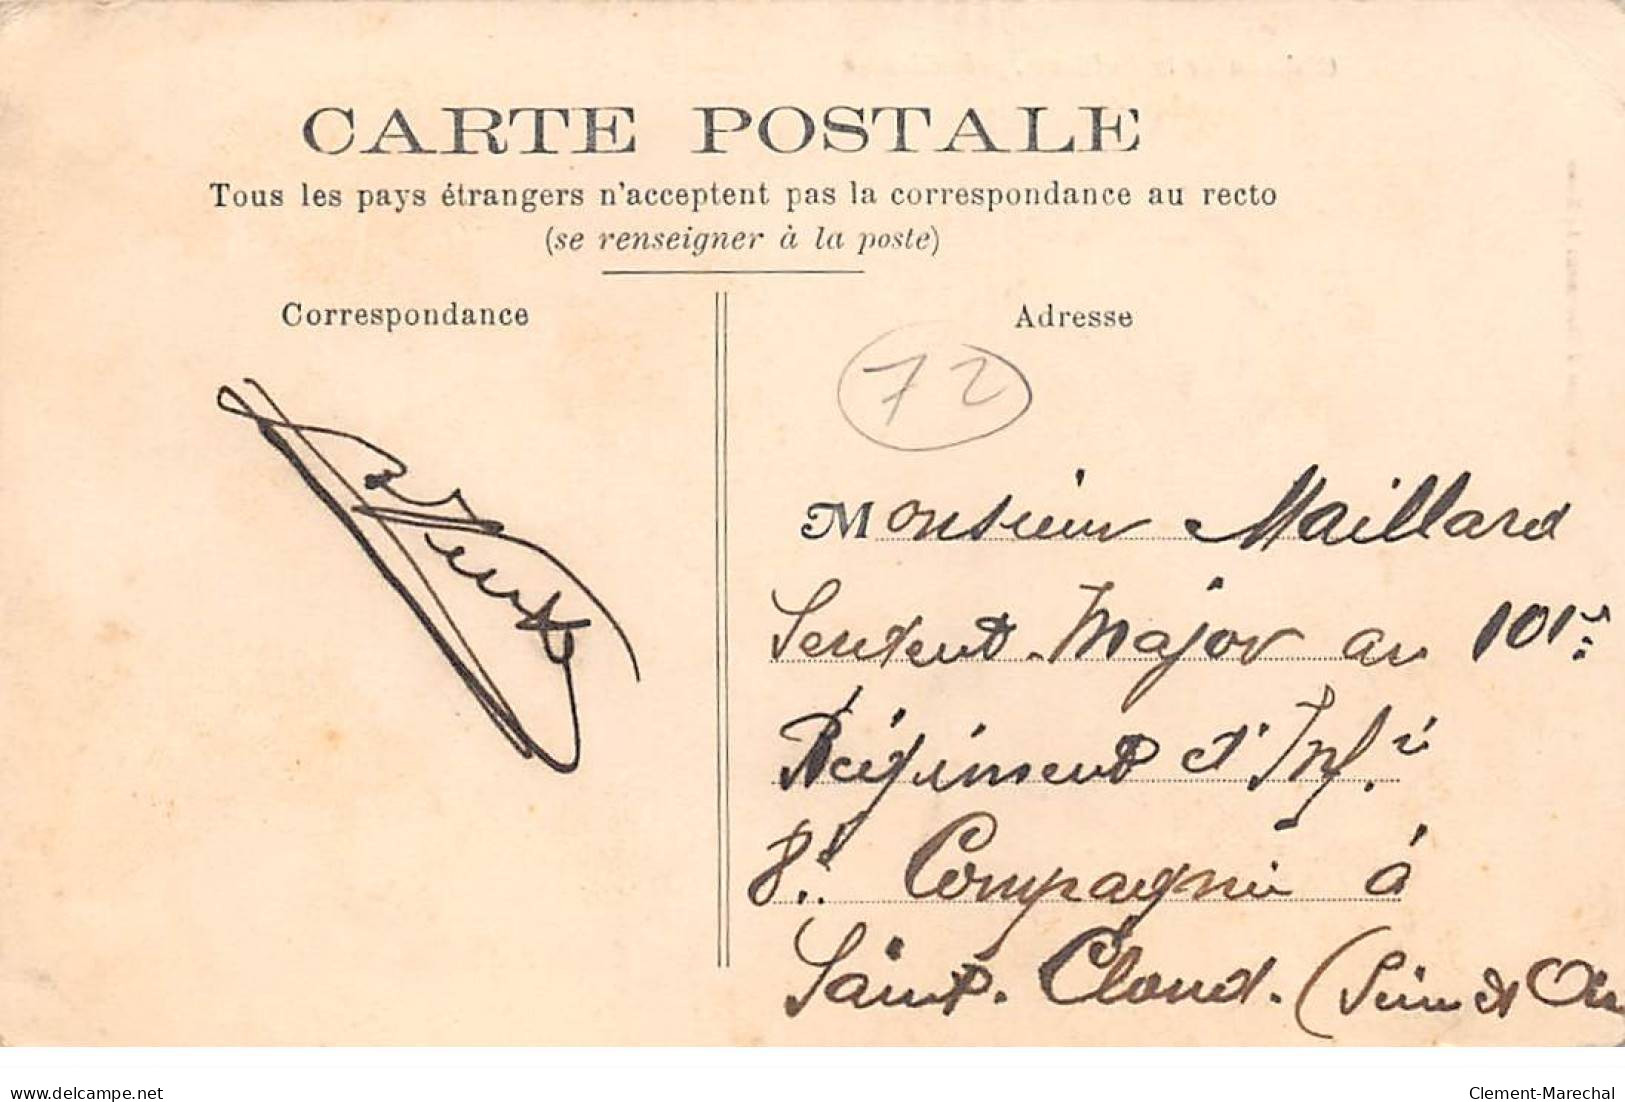 CARTE POSTALE
Tous les pays étrangers n'acceptent pas la correspondance au recto
(se renseigner à la poste)
Correspondance
Adresse
72
Monsieur Maillard
Sergent Major au 101e
Régiment d'Inf.ie
8e Compagnie à
Saint-Cloud. (Seine et Oise
www.delcampe.net
Clement-Marechal